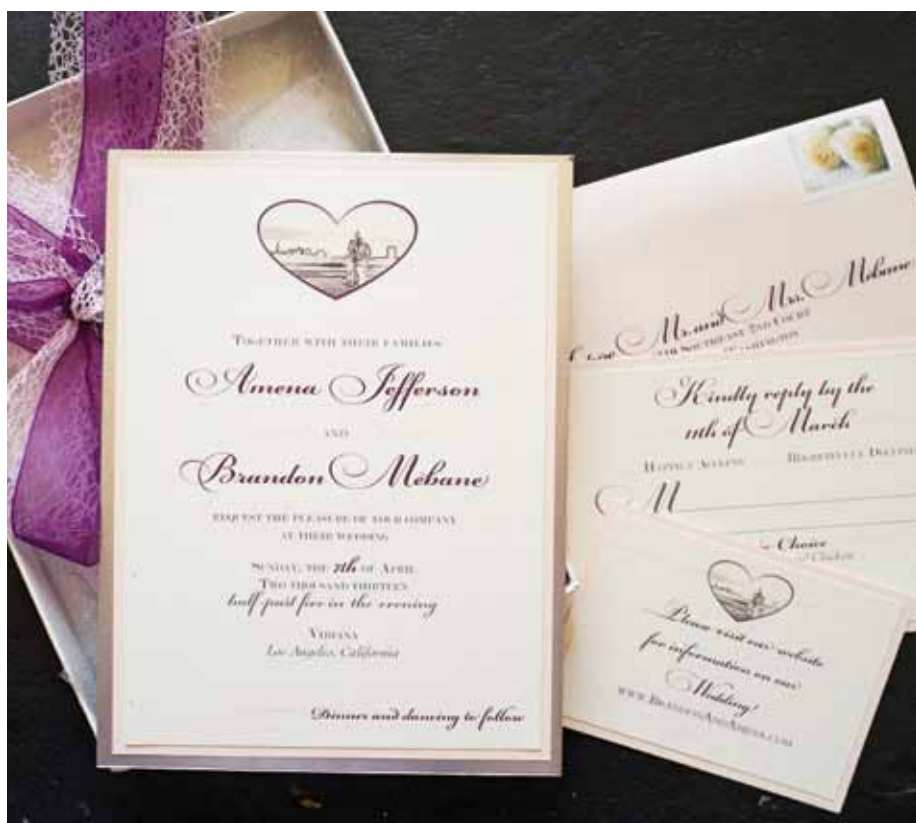 Together with their families
Amena Jefferson
and
Brandon Mebane
request the pleasure of your company
at their wedding
Sunday, the 7th of April
Two thousand thirteen
half-past five in the evening
Vibiana
Los Angeles, California
Dinner and dancing to follow
Mr. and Mrs. Mebane
Southeast 2nd Court
Washington
Kindly reply by the
11th of March
Happily Accepts Regretfully Declines
M
Choice
Chicken
Please visit our website
for information on our
Wedding!
www.BrandonAndAmena.com